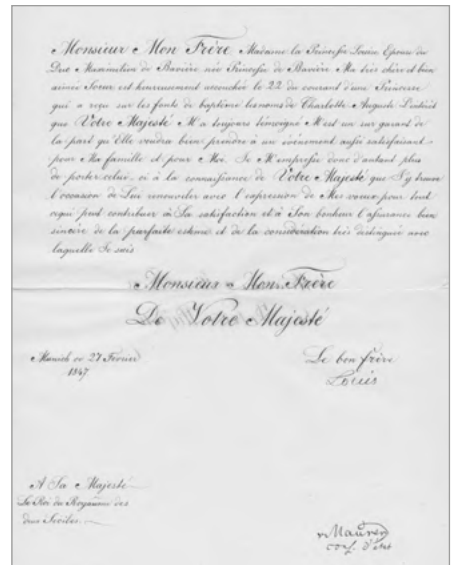 Monsieur Mon Frère Madame la Princesse Louise Epouse du
Duc Maximilien de Bavière née Princesse de Bavière Ma très chère et bien
aimée Soeur est heureusement accouchée le 22 du courant d'une Princesse
qui a reçu sur les fonts de baptême les noms de Charlotte Auguste L'intérêt
que Votre Majesté M'a toujours témoigné M'est un sur garant de
la part qu'Elle voudra bien prendre à un événement aussi satisfaisant
pour Ma famille et pour Moi. Je M'empresse donc d'autant plus
de porter celui-ci à la connaissance de Votre Majesté que J'y trouve
l'occasion de Lui renouveler avec l'expression de Mes voeux pour tout
ce qui peut contribuer à Sa satisfaction et à Son bonheur l'assurance bien
sincère de la parfaite estime et de la considération très distinguée avec
laquelle Je suis
Monsieur Mon Frère
De Votre Majesté
Munich ce 27 Fevrier
1847
Le bon frère
Louis
A Sa Majesté
Le Roi du Royaume des
deux Siciles.
v. Maurer
cons. d'état